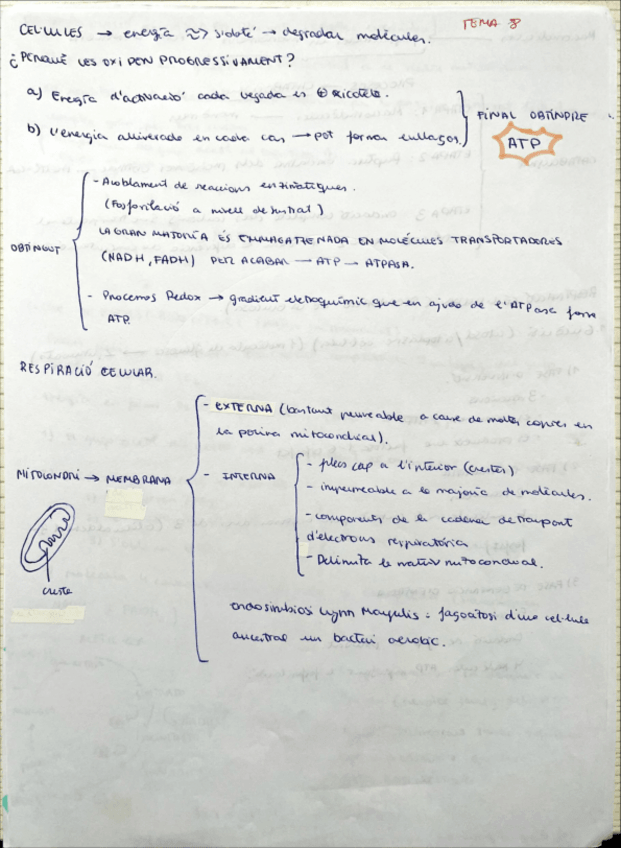 TEMA 8
CÈL·LULES → energia s'obté → degradar molècules.
¿PERQUÈ LES OXIDEN PROGRESSIVAMENT?
a) Energia d'activació cada vegada és ⊕
b) l'energia alliberada en cada cas → pot formar enllaços.
FINAL OBTINDRE
ATP
OBTINGUT
- Acoblament de reaccions enzimàtiques.
(Fosforilació a nivell de sustrat)
LA GRAN MAJORIA ÉS EMMAGATZENADA EN MOLÈCULES TRANSPORTADORES
(NADH, FADH) PER ACABAR → ATP → ATPASA.
- Processos Redox → gradient electroquímic que en ajuda de l'ATPasa forma
ATP.
RESPIRACIÓ CEL·LULAR.
MITOCONDRI → MEMBRANA
- EXTERNA (bastant permeable a causa de moltes copies en
la porina mitocondrial).
- INTERNA
- plecs cap a l'interior (crestes)
- impermeable a la majoria de molècules.
- components de la cadena de transport
d'electrons respiratòria
- Delimita la matriu mitocondrial.
cresta
endosimbiosi Lynn Margulis: fagocitosi d'una cèl·lula
ancestral un bacteri aeròbic.